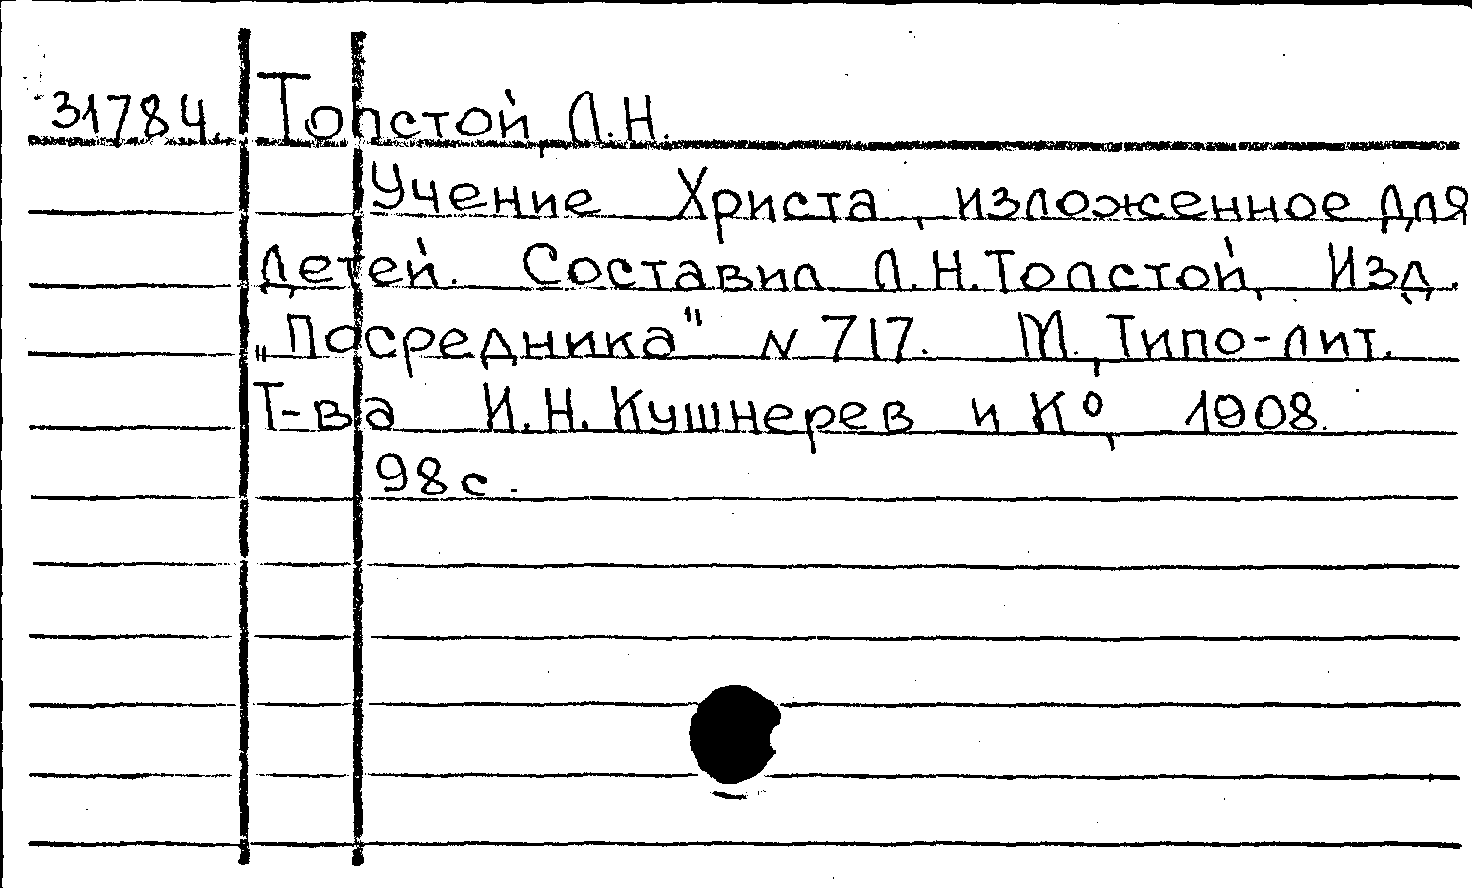 31784. Толстой, Л.Н.
Учение Христа, изложенное для
детей. Составил Л.Н.Толстой, Изд.
„Посредника" N 717. М., Типо-лит.
Т-ва И.Н.Кушнерев и К°, 1908.
98 с.